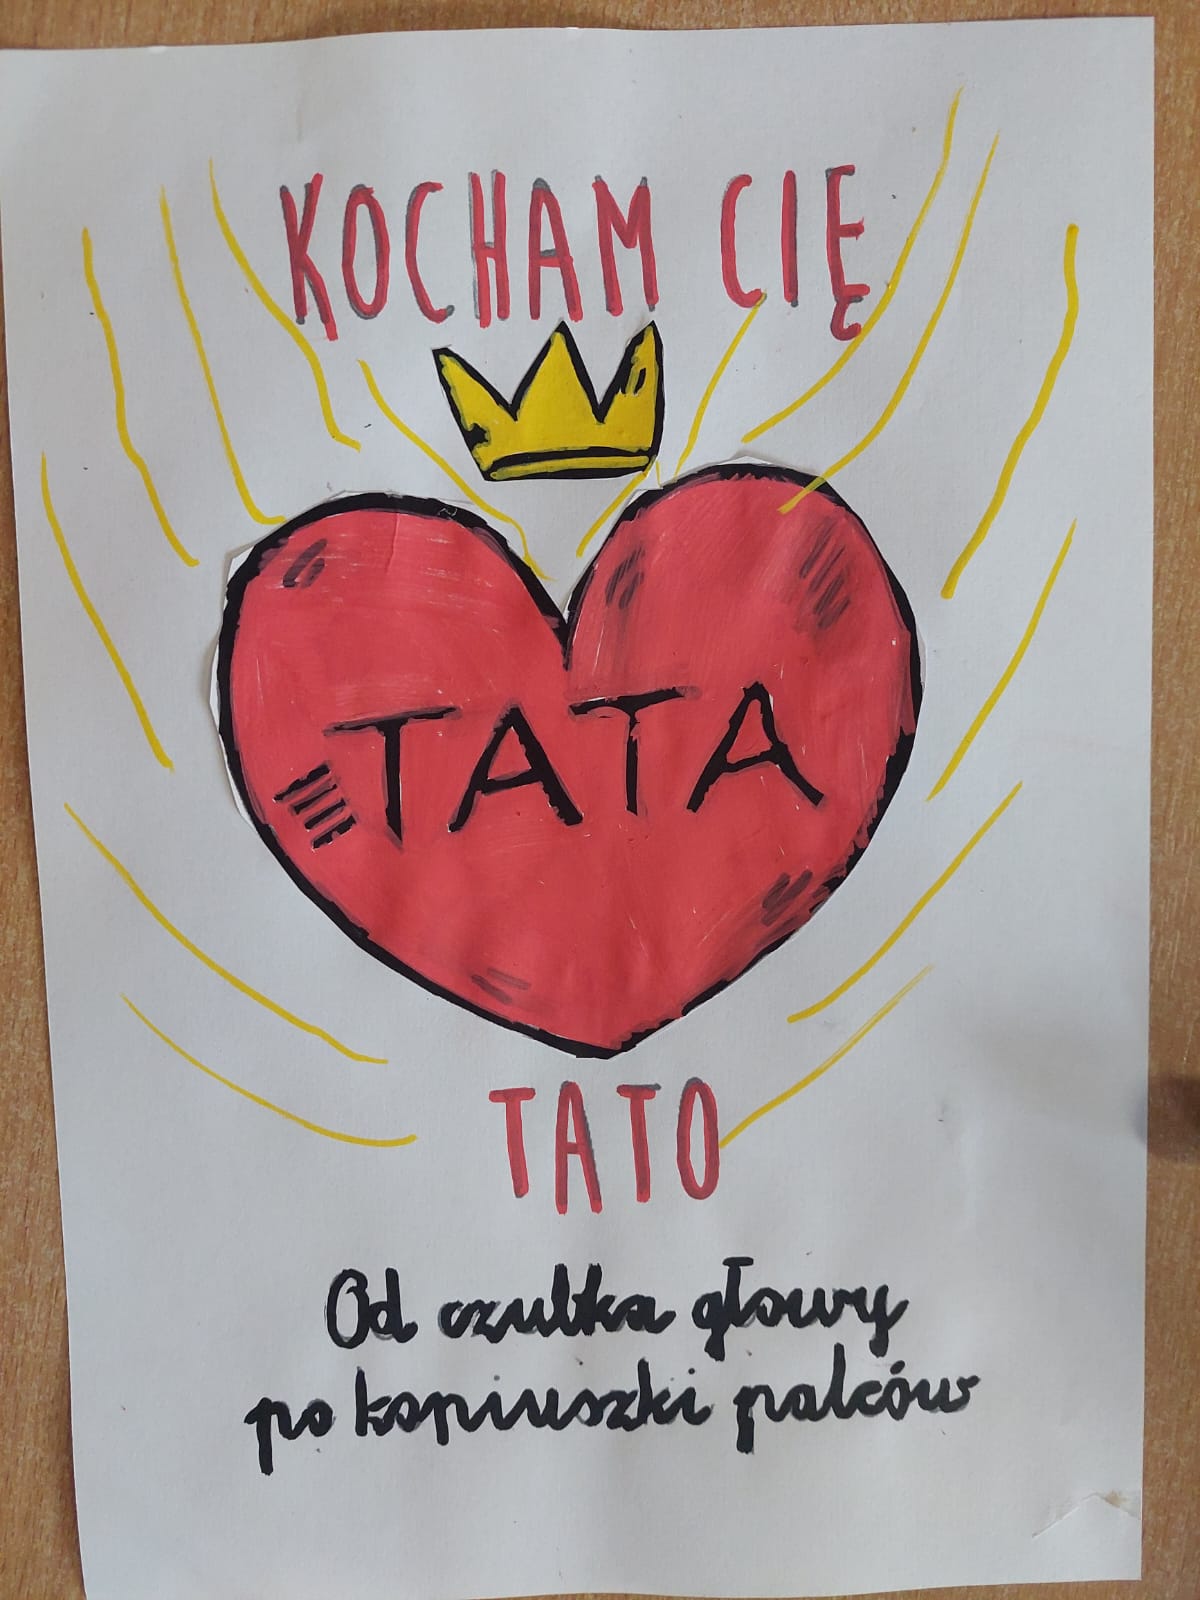 KOCHAM CIĘ
TATA
TATO
Od czubka głowy
po koniuszki palców